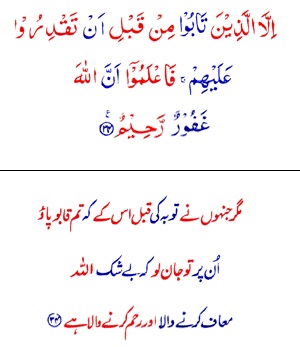 اِلَّا الَّذِيْنَ تَابُوْا مِنْ قَبْلِ اَنْ تَقْدِرُوْا
عَلَيْهِمْ ۚ فَاعْلَمُوْۤا اَنَّ اللّٰهَ
غَفُوْرٌ رَّحِيْمٌ ۧ ﴿۳۴﴾
مگر جنہوں نے توبہ کی قبل اس کے کہ تم قابو پاؤ
اُن پر تو جان لو کہ بے شک اللہ
معاف کرنے والا اور رحم کرنے والا ہے ﴿۳۴﴾